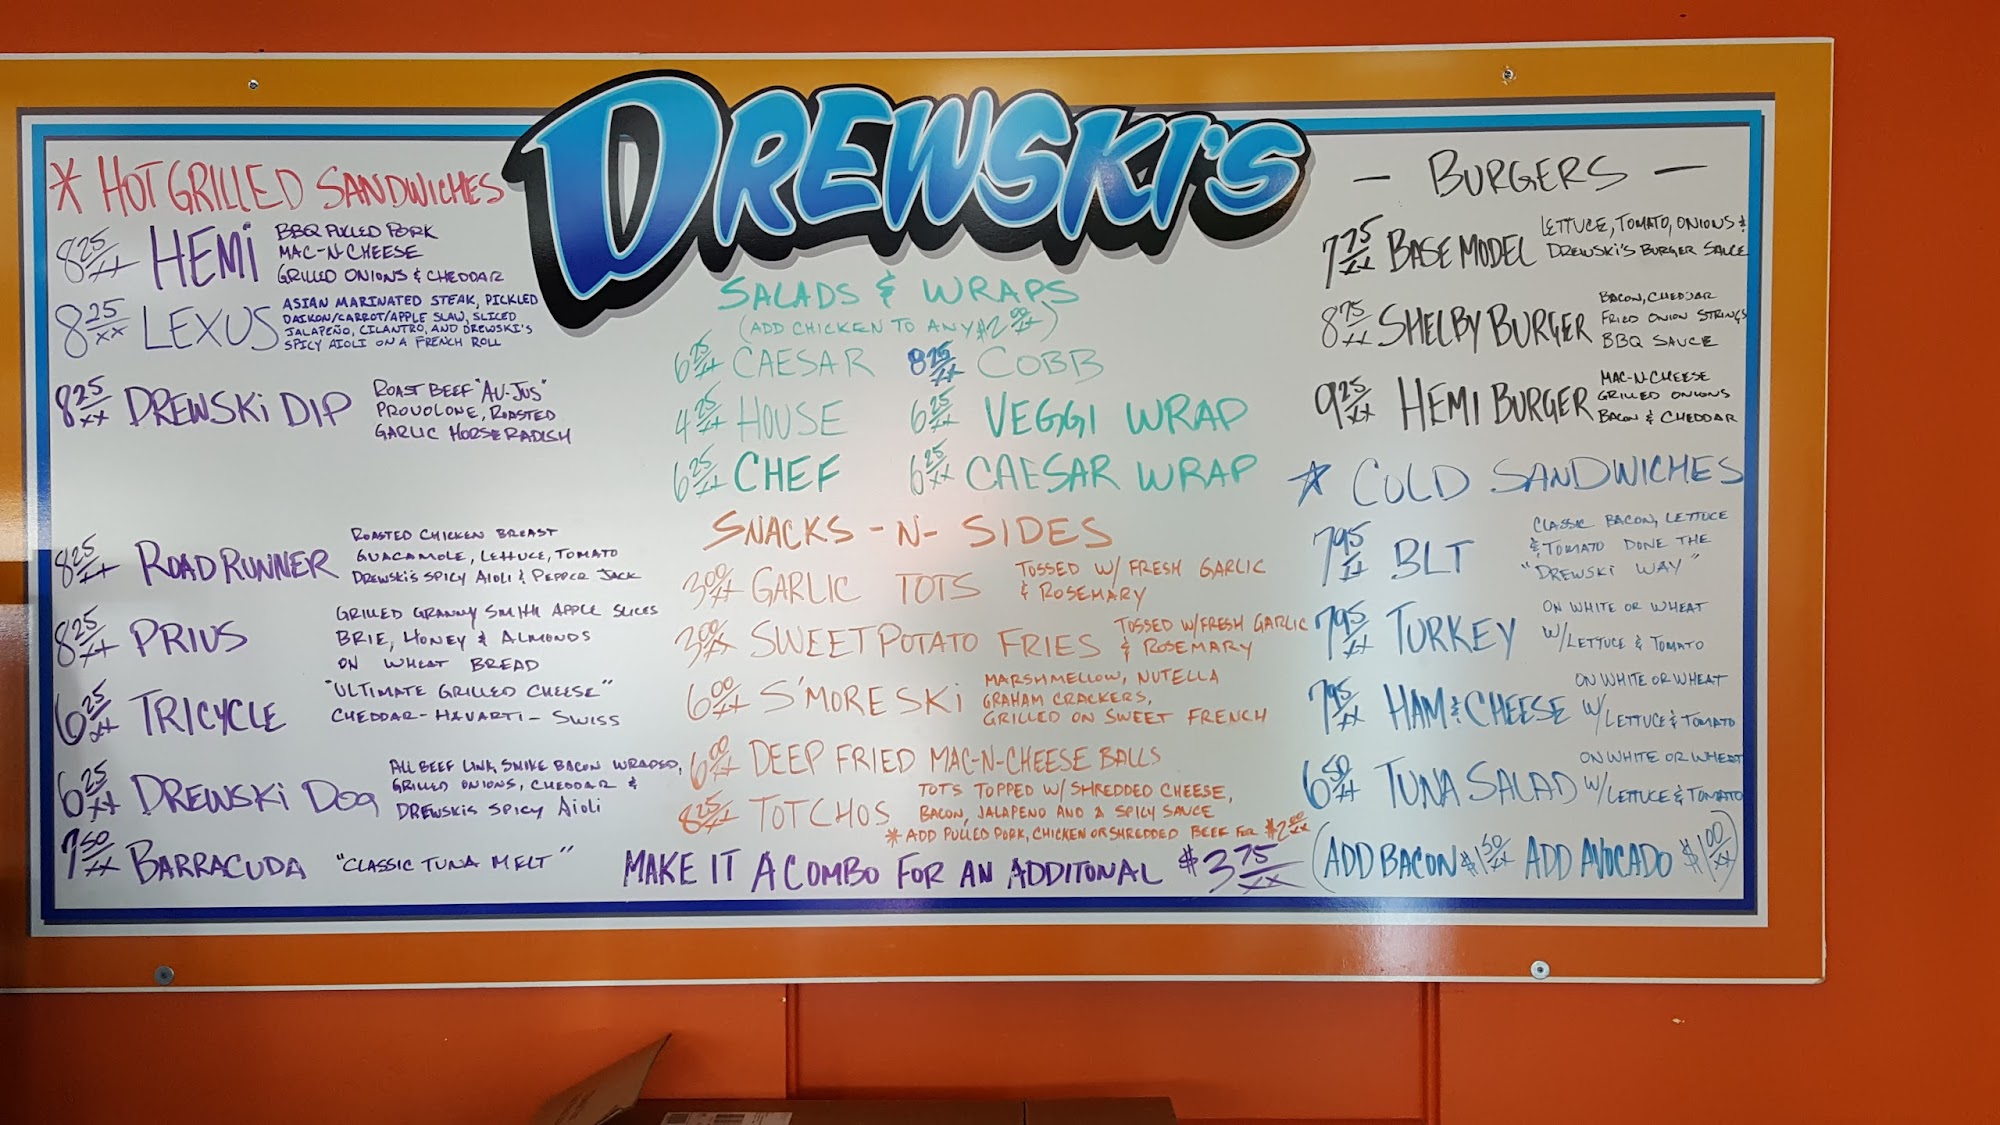 DREWSKI'S
* HOT GRILLED SANDWICHES
8 25/xx HEMI BBQ PULLED PORK
MAC-N-CHEESE
GRILLED ONIONS & CHEDDAR
8 25/xx LEXUS ASIAN MARINATED STEAK, PICKLED
DAIKON/CARROT/APPLE SLAW, SLICED
JALAPEÑO, CILANTRO, AND DREWSKI'S
SPICY AIOLI ON A FRENCH ROLL
8 25/xx DREWSKI DIP ROAST BEEF "AU-JUS"
PROVOLONE, ROASTED
GARLIC HORSERADISH
8 25/xx ROAD RUNNER ROASTED CHICKEN BREAST
GUACAMOLE, LETTUCE, TOMATO
DREWSKI'S SPICY AIOLI & PEPPER JACK
8 25/xx PRIUS GRILLED GRANNY SMITH APPLE SLICES
BRIE, HONEY & ALMONDS
ON WHEAT BREAD
6 25/xx TRICYCLE "ULTIMATE GRILLED CHEESE"
CHEDDAR-HAVARTI-SWISS
6 25/xx DREWSKI DOG ALL BEEF LINK, SMIKE BACON WRAPPED,
GRILLED ONIONS, CHEDDAR &
DREWSKIS SPICY AIOLI
7 50/xx BARRACUDA "CLASSIC TUNA MELT"
SALADS & WRAPS
(ADD CHICKEN TO ANY $2 00/xx)
6 25/xx CAESAR 8 25/xx COBB
4 25/xx HOUSE 6 25/xx VEGGI WRAP
6 25/xx CHEF 6 25/xx CAESAR WRAP
SNACKS -N- SIDES
3 00/xx GARLIC TOTS TOSSED W/ FRESH GARLIC
& ROSEMARY
3 00/xx SWEET POTATO FRIES TOSSED W/FRESH GARLIC
& ROSEMARY
6 00/xx S'MORESKI MARSHMELLOW, NUTELLA
GRAHAM CRACKERS,
GRILLED ON SWEET FRENCH
6 00/xx DEEP FRIED MAC-N-CHEESE BALLS
8 25/xx TOTCHOS TOTS TOPPED W/SHREDDED CHEESE,
BACON, JALAPENO AND A SPICY SAUCE
* ADD PULLED PORK, CHICKEN OR SHREDDED BEEF FOR $2 00/xx
MAKE IT A COMBO FOR AN ADDITONAL $3 75/xx
- BURGERS -
7 75/xx BASE MODEL LETTUCE, TOMATO, ONIONS &
DREWSKI'S BURGER SAUCE
8 75/xx SHELBY BURGER BACON, CHEDDAR
FRIED ONION STRINGS
BBQ SAUCE
9 25/xx HEMI BURGER MAC-N-CHEESE
GRILLED ONIONS
BACON & CHEDDAR
* COLD SANDWICHES
7 95/xx BLT CLASSIC BACON, LETTUCE
& TOMATO DONE THE
"DREWSKI WAY"
7 95/xx TURKEY ON WHITE OR WHEAT
W/LETTUCE & TOMATO
7 95/xx HAM & CHEESE ON WHITE OR WHEAT
W/LETTUCE & TOMATO
6 50/xx TUNA SALAD ON WHITE OR WHEAT
W/LETTUCE & TOMATO
(ADD BACON $1 50/xx ADD AVOCADO $1 00/xx)